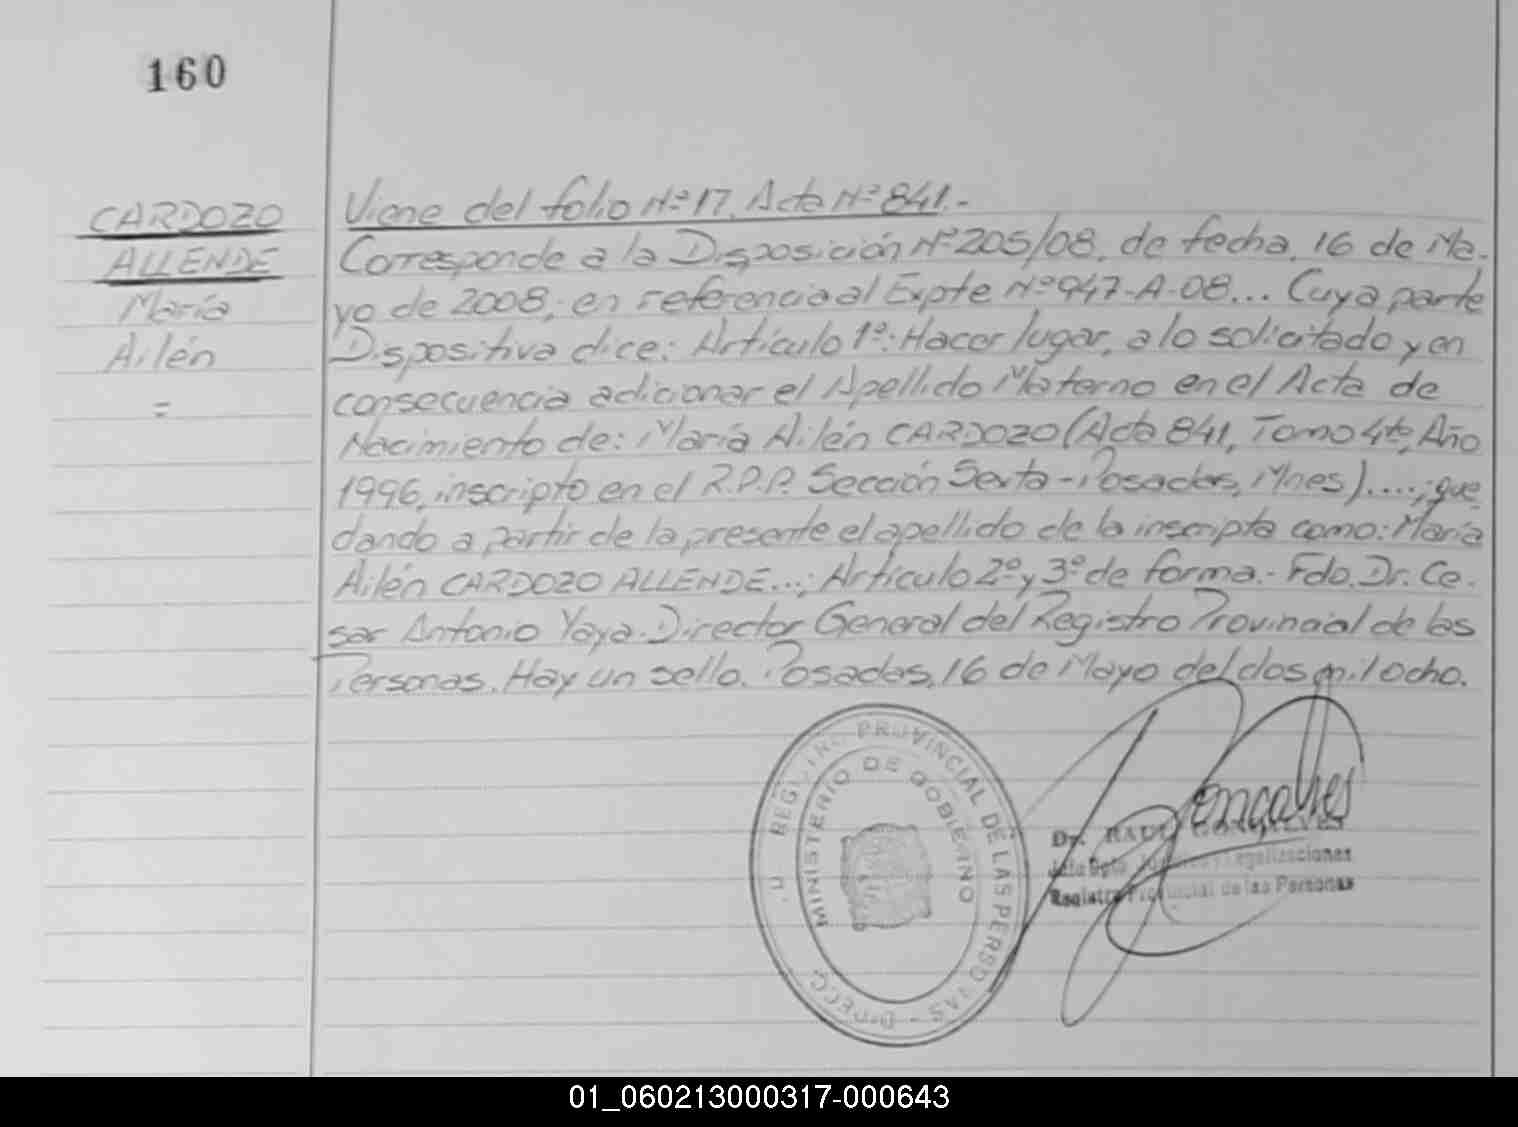 160
CARDOZO
ALLENDE
María
Ailén
=
Viene del folio Nº 17. Acta Nº 841.-
Corresponde a la Disposición Nº 205/08, de fecha, 16 de Ma-
yo de 2008, en referencia al Expte Nº 947-A-08... Cuya parte
Dispositiva dice: Artículo 1º: Hacer lugar, a lo solicitado y en
consecuencia adicionar el Apellido Materno en el Acta de
Nacimiento de: María Ailén CARDOZO (Acta 841, Tomo 4to, Año
1996, inscripto en el R.P.P. Sección Sexta - Posadas, Mnes)....; que
dando a partir de la presente el apellido de la inscripta como: María
Ailén CARDOZO ALLENDE...; Artículo 2º y 3º de forma.- Fdo. Dr. Ce-
sar Antonio Yaya. Director General del Registro Provincial de las
Personas. Hay un sello. Posadas, 16 de Mayo del dos mil ocho.
REGISTRO PROVINCIAL DE LAS PERSONAS
MINISTERIO DE GOBIERNO
Goncalves
Dr. RAUL GONCALVES
Jefe Dpto. Legalizaciones
Registro Provincial de las Personas
01_060213000317-000643